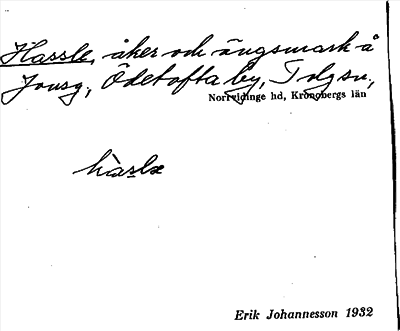 Hassle, åker och ängsmark å
Jonsg., Ödetofta by, Tolg sn,
Norrvidinge hd, Kronobergs län
hasle
Erik Johannesson 1932